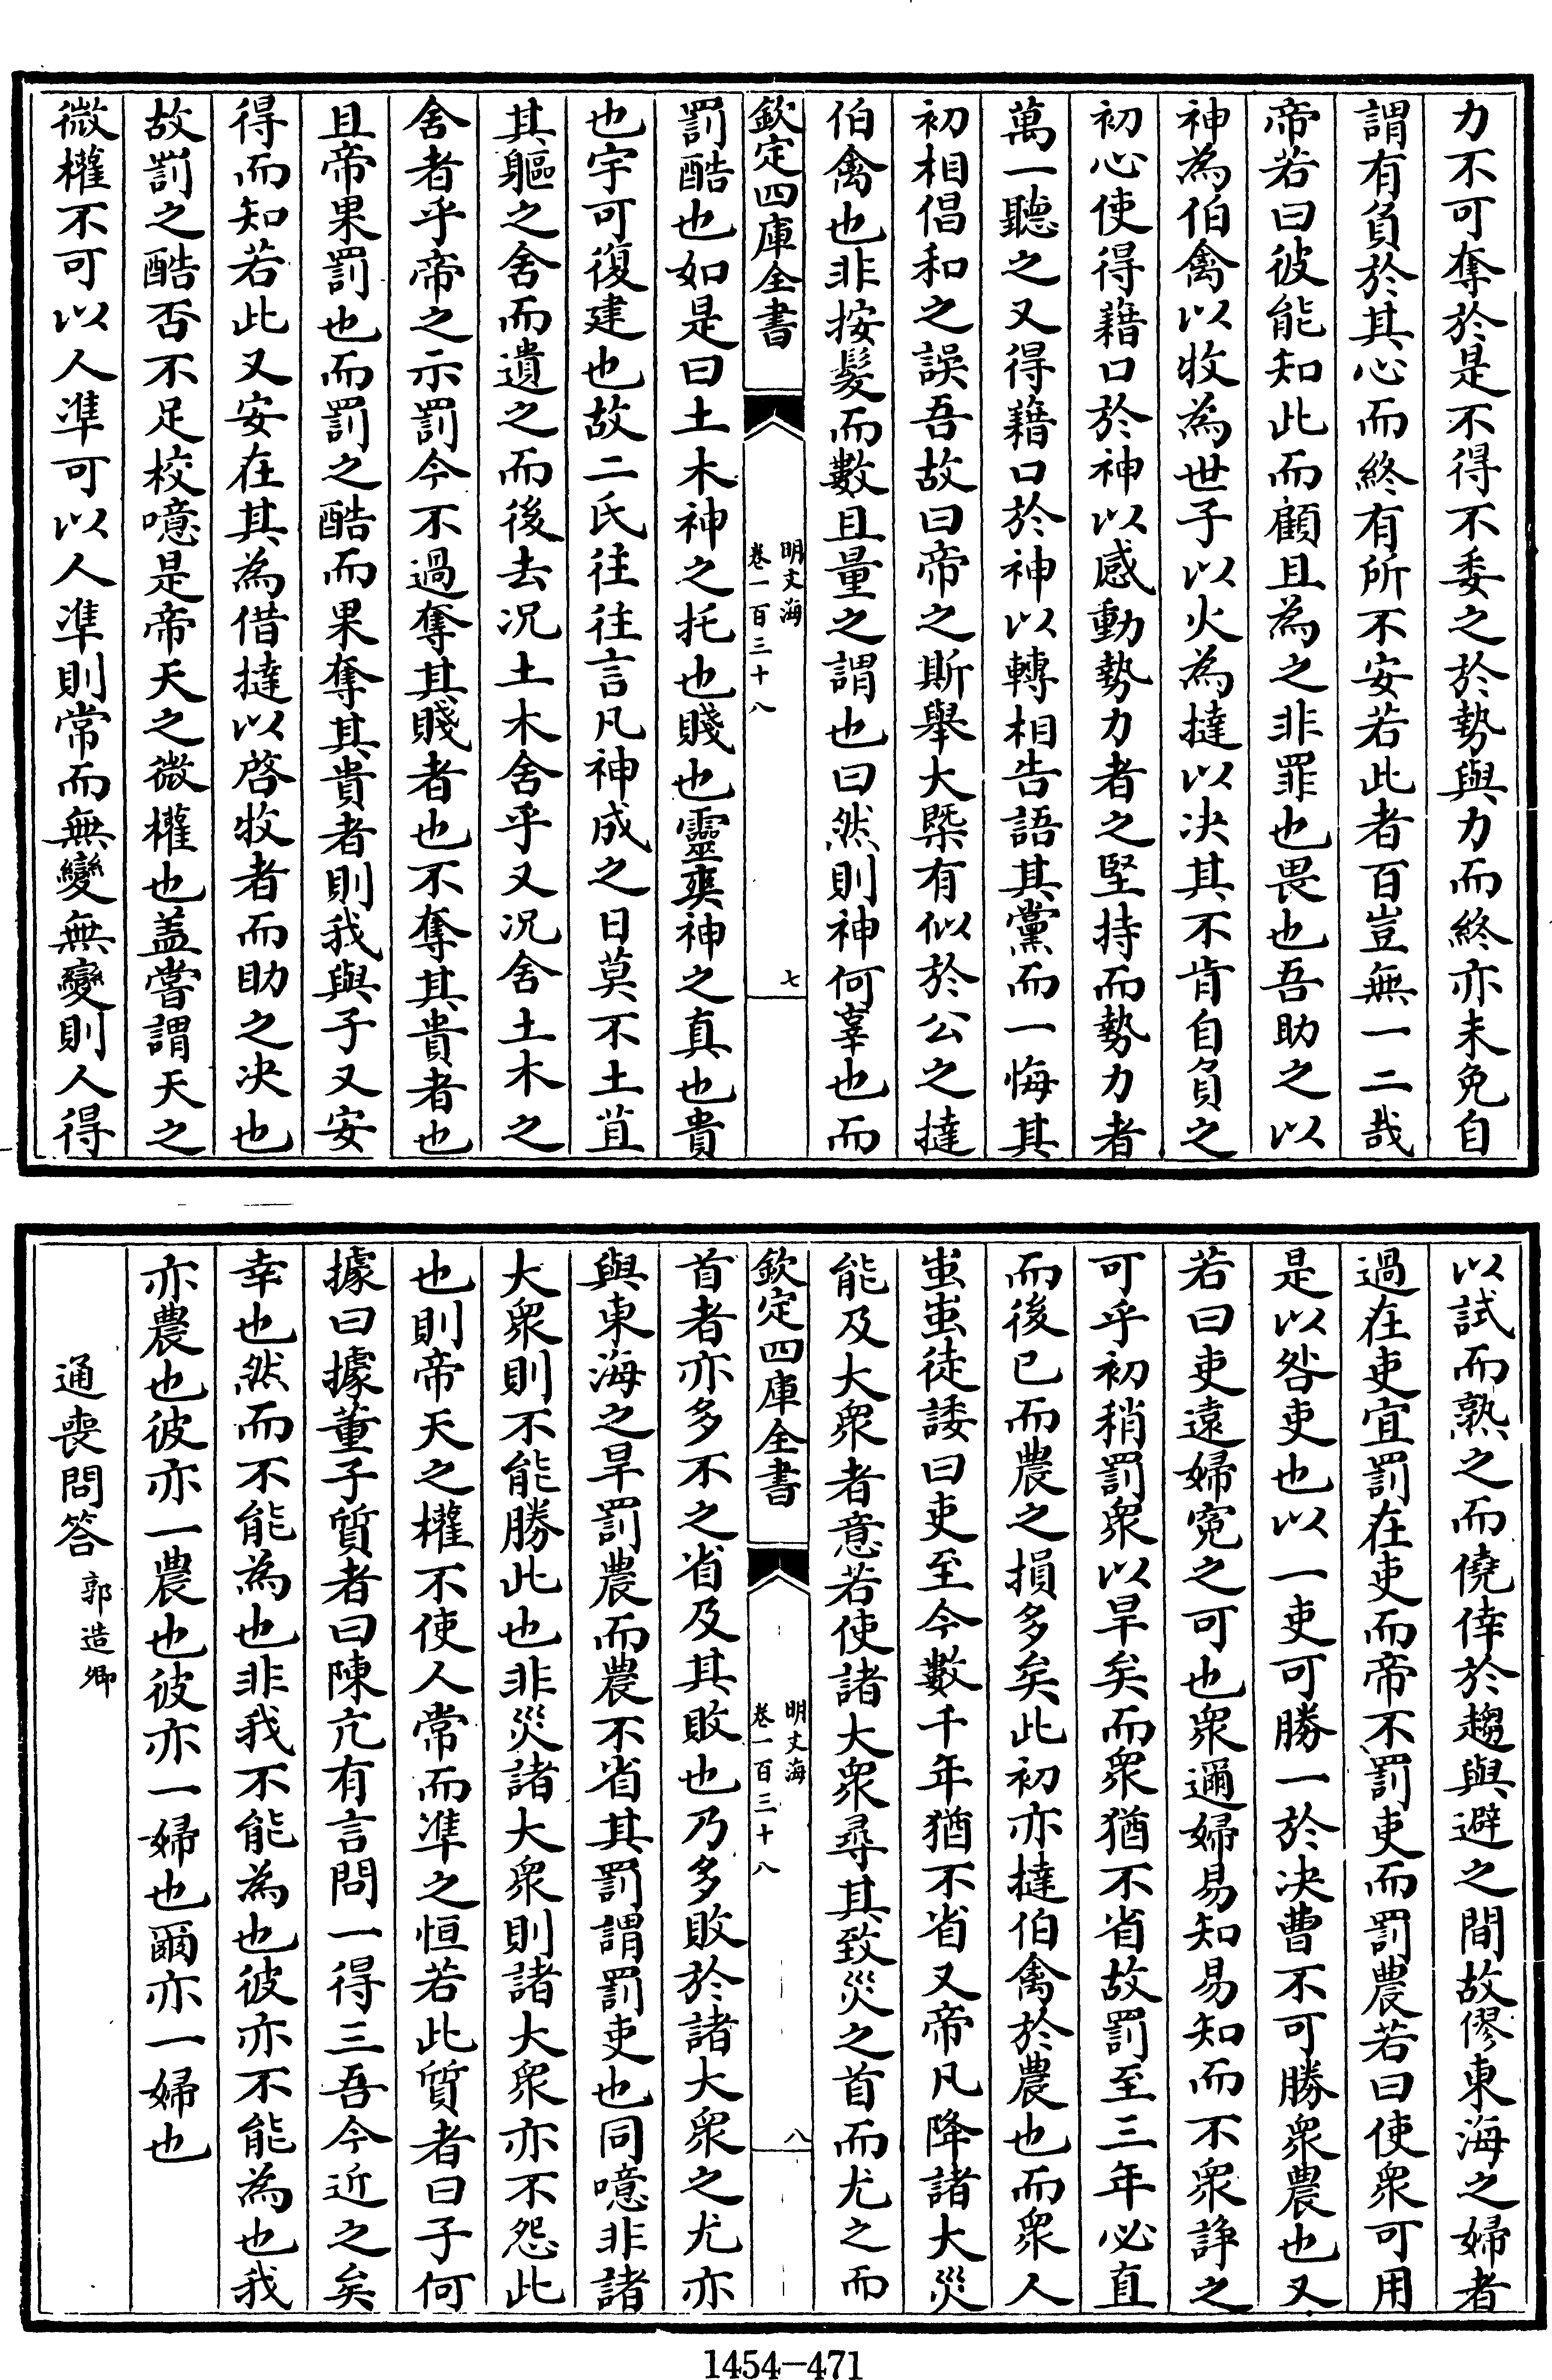 力不可奪於是不得不委之於勢與力而終亦未免自
謂有負於其心而終有所不安若此者百豈無一二哉
帝若曰彼能知此而顧且為之非罪也畏也吾助之以
神為伯禽以牧為世子以火為撻以決其不肯自負之
初心使得藉口於神以感動勢力者之堅持而勢力者
萬一聽之又得藉口於神以轉相告語其黨而一悔其
初相倡和之誤吾故曰帝之斯舉大槩有似於公之撻
伯禽也非按髮而數且量之謂也曰然則神何辜也而
欽定四庫全書
明文海
卷一百三十八
七
罰酷也如是曰土木神之托也賤也靈爽神之真也貴
也宇可復建也故二氏往往言凡神成之日莫不土苴
其軀之舍而遺之而後去況土木舍乎又況舍土木之
舍者乎帝之示罰今不過奪其賤者也不奪其貴者也
且帝果罰也而罰之酷而果奪其貴者則我與子又安
得而知若此又安在其為借撻以啓牧者而助之決也
故罰之酷否不足校噫是帝天之微權也盖嘗謂天之
微權不可以人準可以人準則常而無變無變則人得
以試而熟之而僥倖於趨與避之間故僇東海之婦者
過在吏宜罰在吏而帝不罰吏而罰農若曰使衆可用
是以咎吏也以一吏可勝一於決曹不可勝衆農也又
若曰吏遠婦寃之可也衆邇婦易知易知而不衆諍之
可乎初稍罰衆以旱矣而衆猶不省故罰至三年必直
而後已而農之損多矣此初亦撻伯禽於農也而衆人
蚩蚩徒諉曰吏至今數千年猶不省又帝凡降諸大災
能及大衆者意若使諸大衆尋其致災之首而尤之而
欽定四庫全書
明文海
卷一百三十八
八
首者亦多不之省及其敗也乃多敗於諸大衆之尤亦
與東海之旱罰農而農不省其罰謂罰吏也同噫非諸
大衆則不能勝此也非災諸大衆則諸大衆亦不怨此
也則帝天之權不使人常而準之恒若此質者曰子何
據曰據董子質者曰陳亢有言問一得三吾今近之矣
幸也然而不能為也非我不能為也彼亦不能為也我
亦農也彼亦一農也彼亦一婦也爾亦一婦也
通喪問答 郭造卿
1454—471